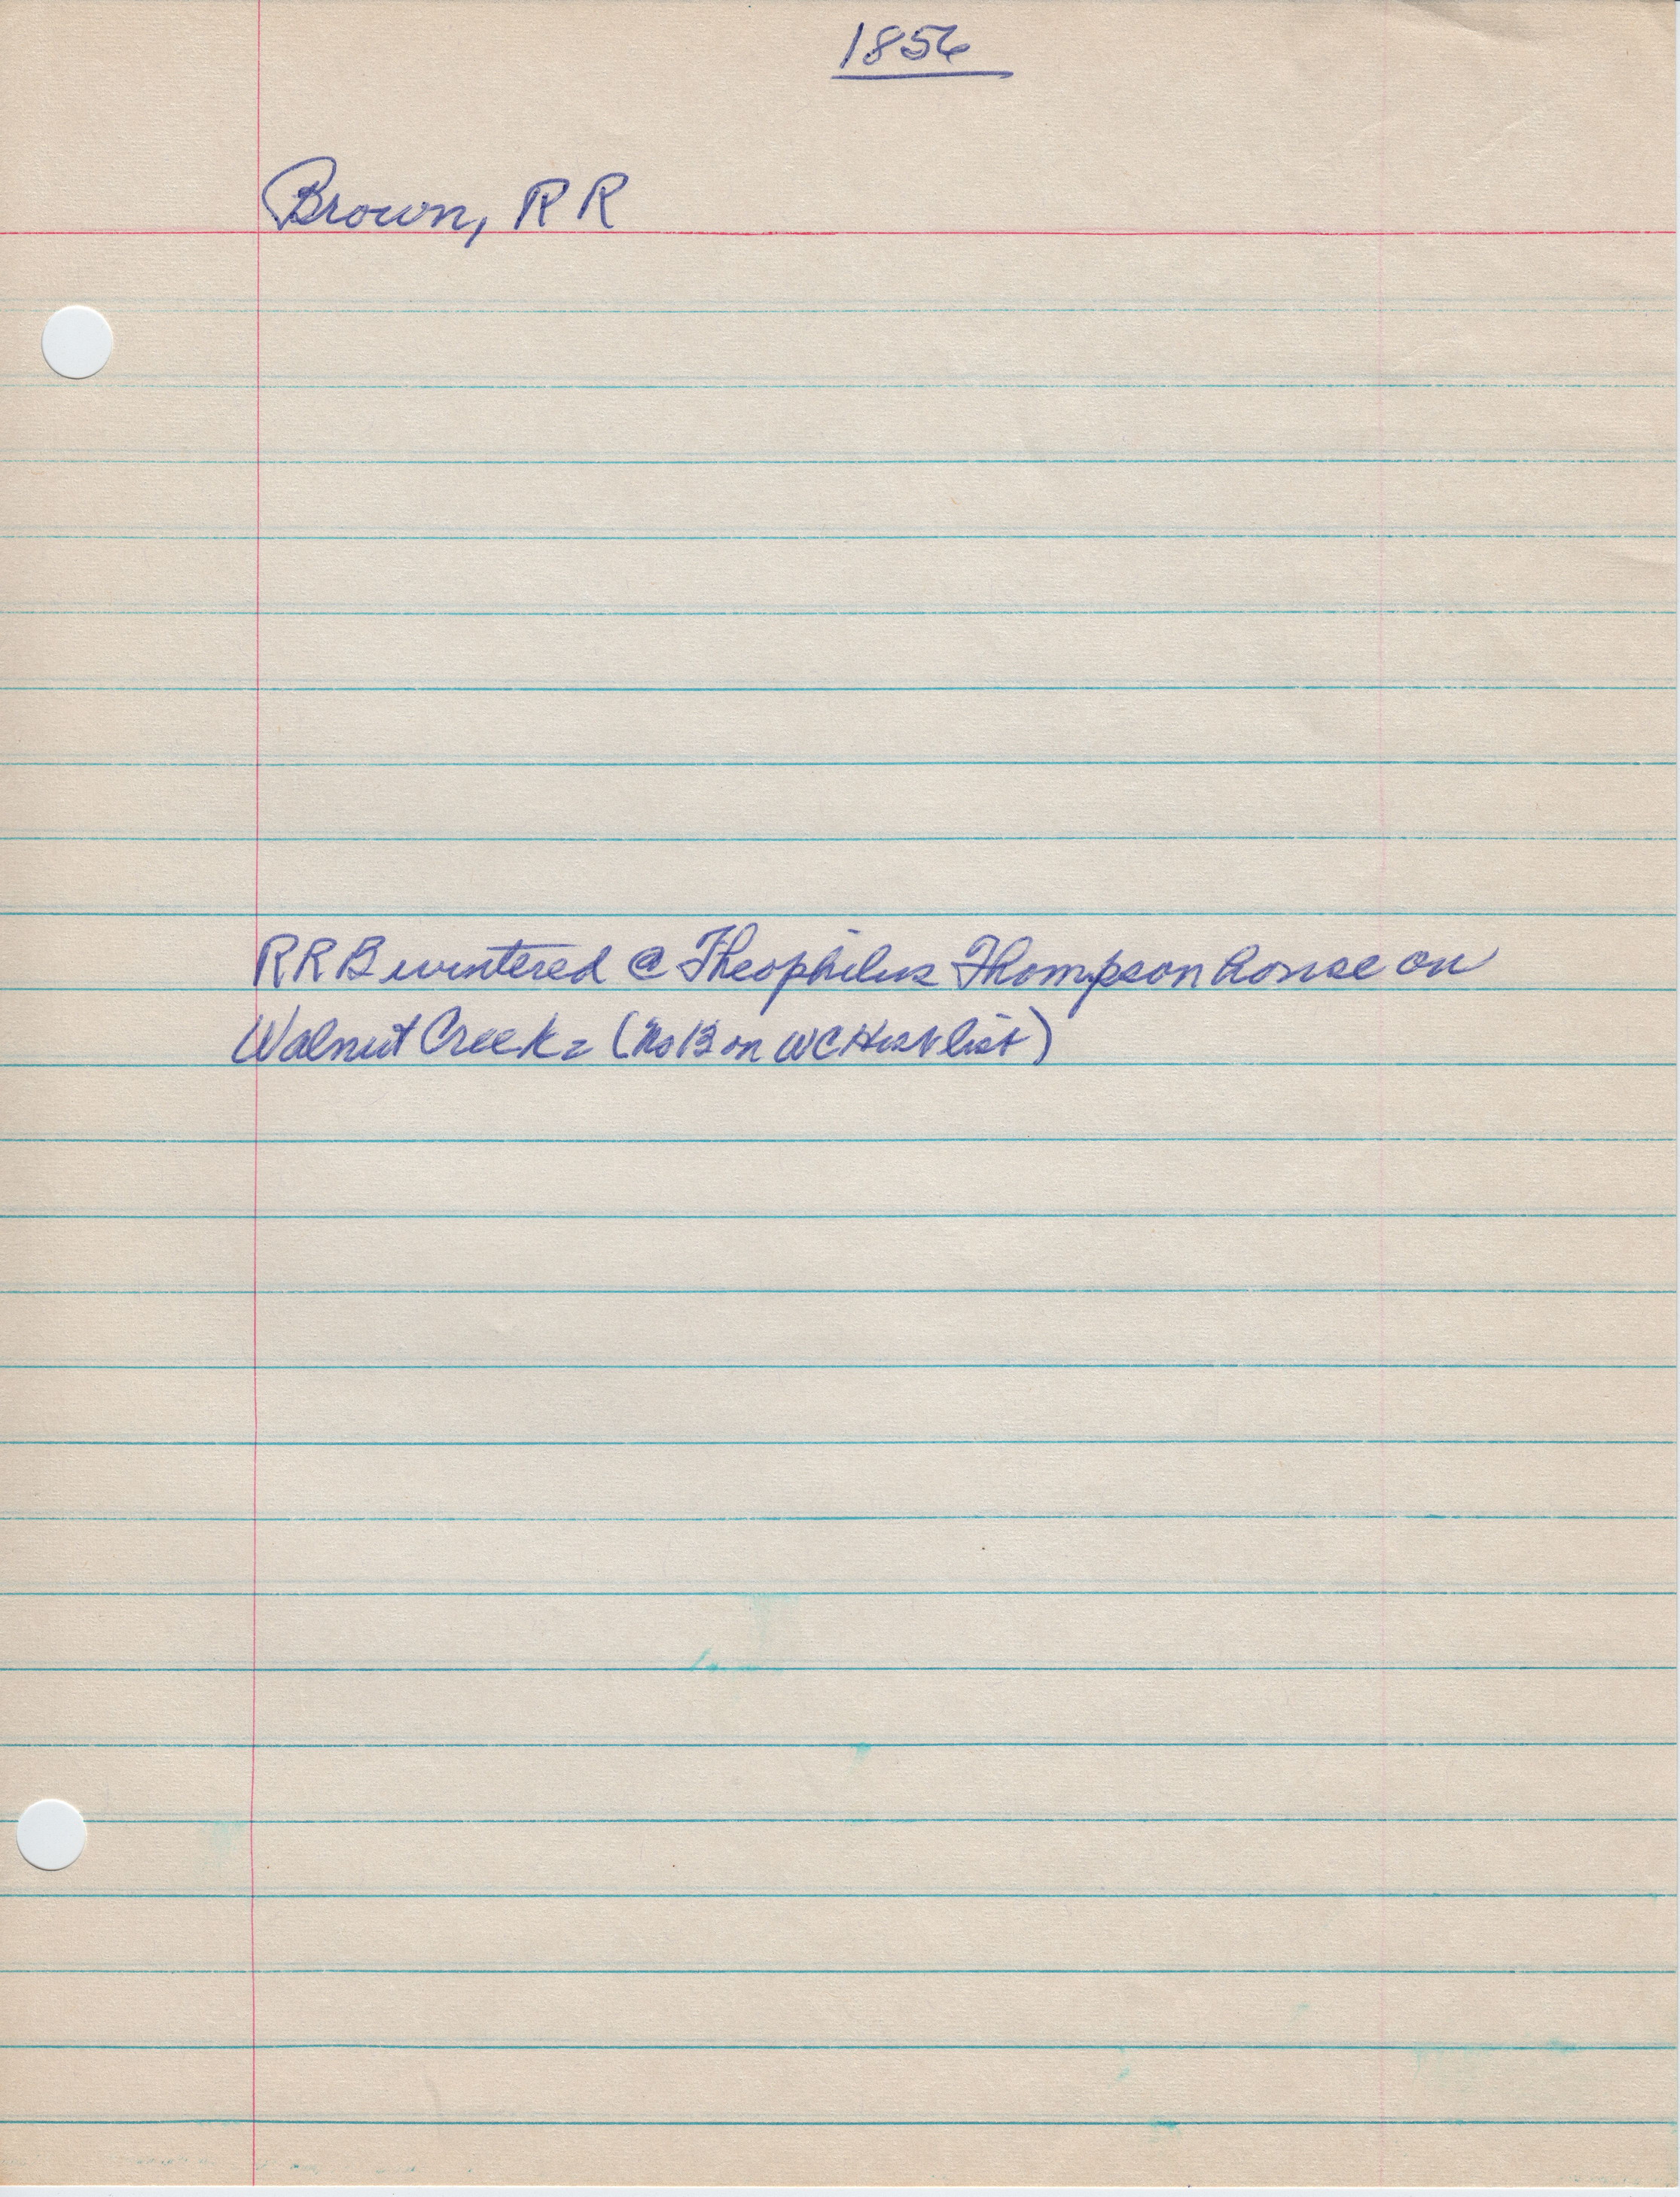 1856
Brown, R R
RRB wintered @ Theophilus Thompson house on
Walnut Creek = (No 13 on WC Hist list)